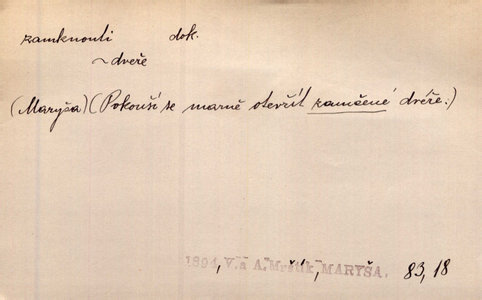 zamknouti dok.
~ dveře
(Maryša) (Pokouší se marně otevřít zamčené dvéře.)
1894, V. a A. Mrštík, MARYŠA. 83, 18